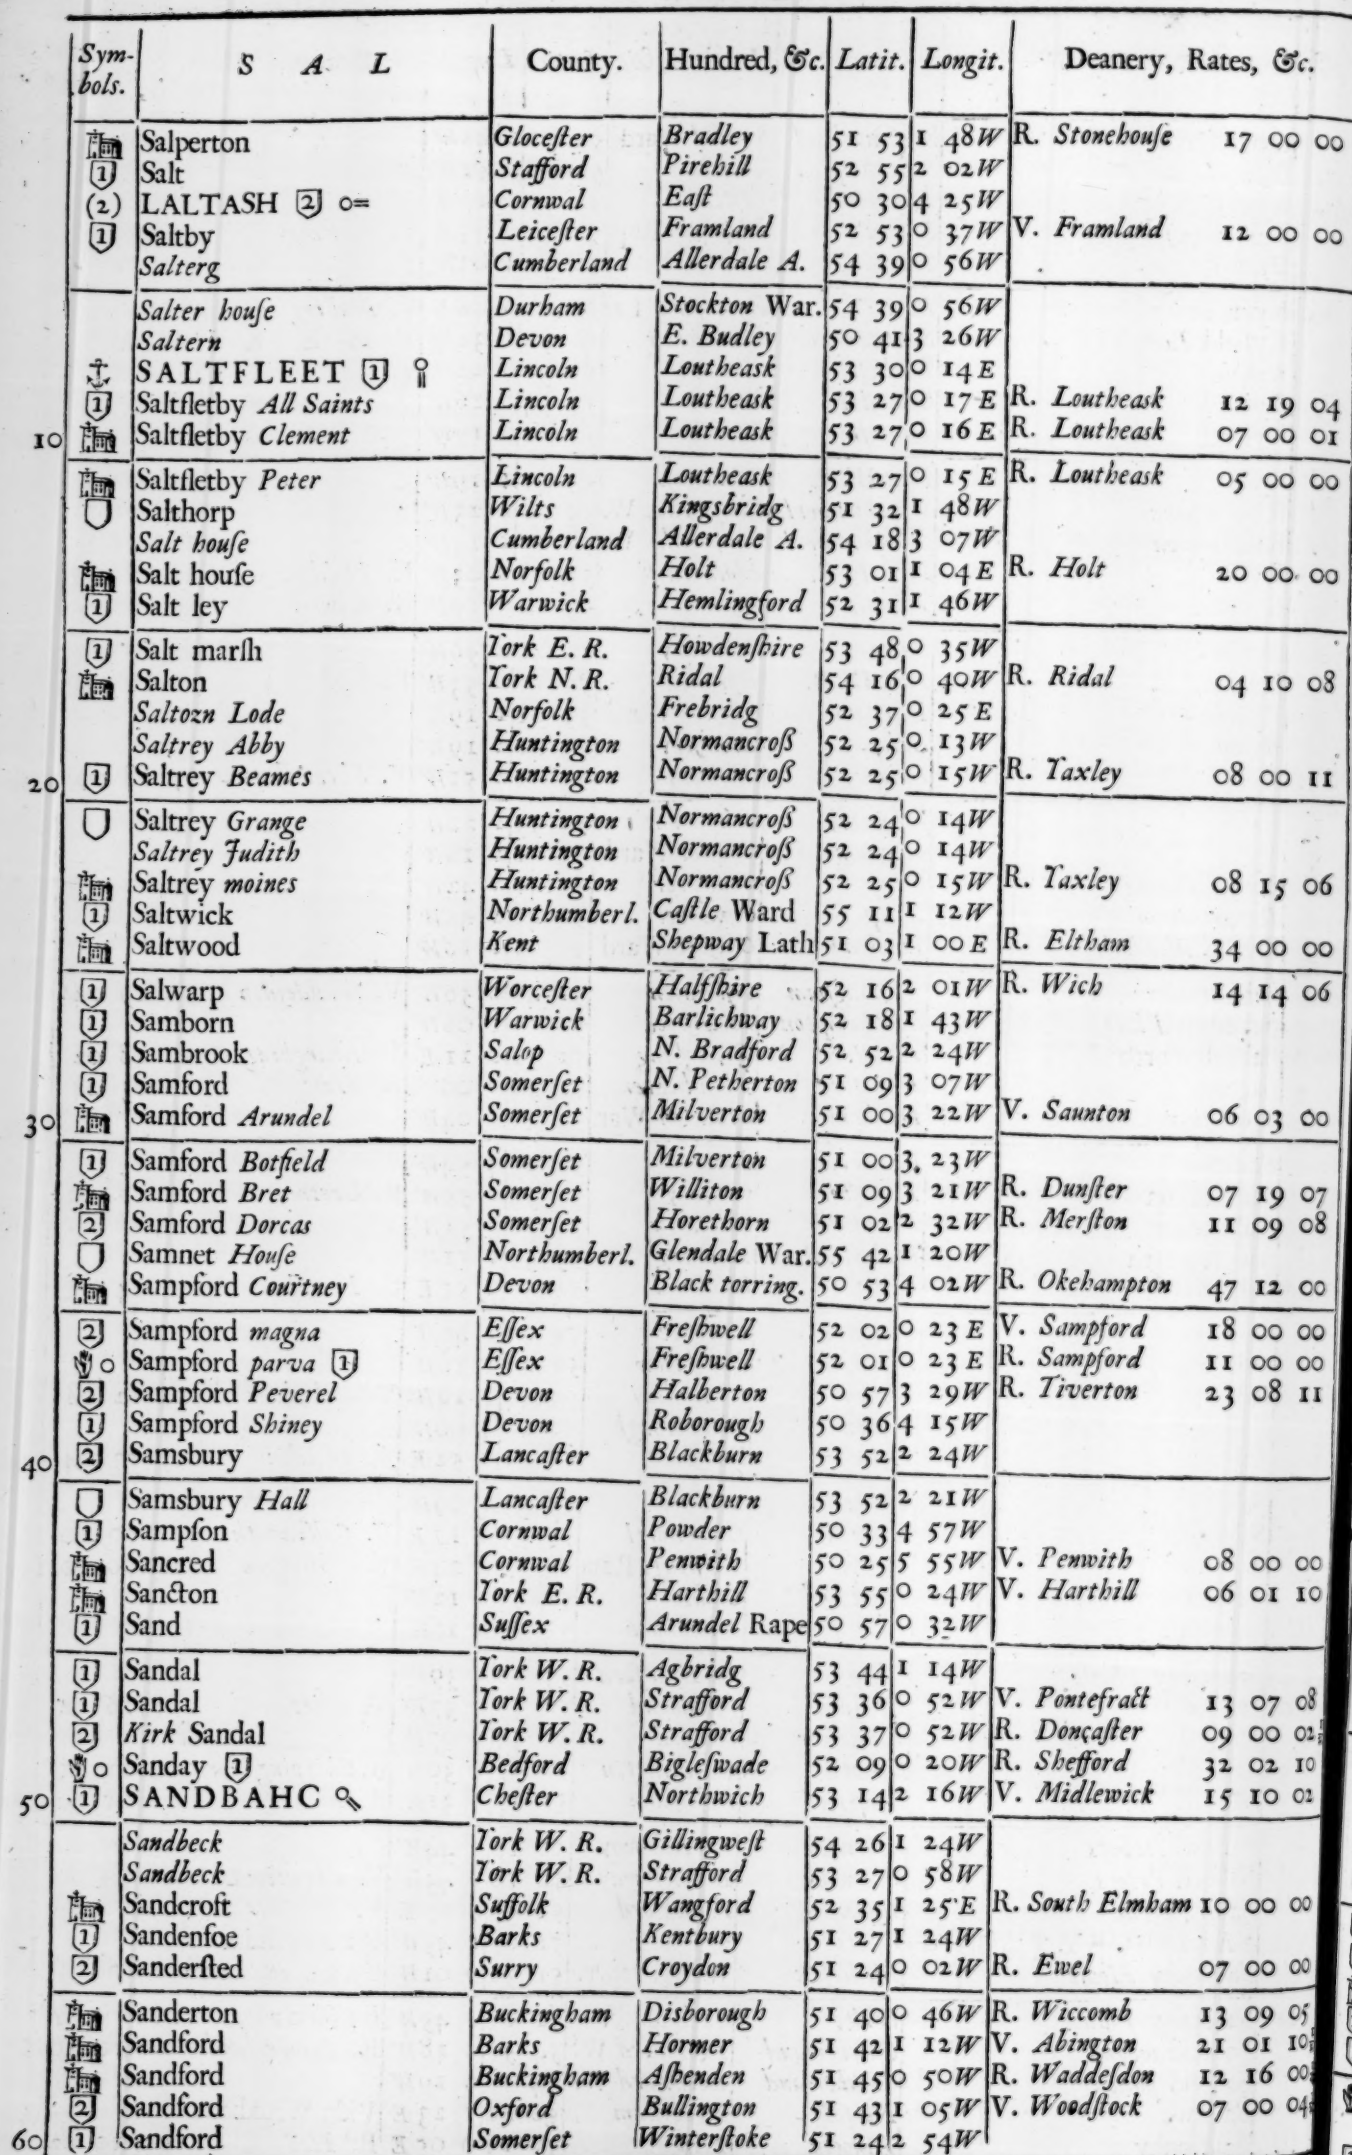 Sym-bols. S A L County. Hundred, &c. Latit. Longit. Deanery, Rates, &c.
Salperton Gloceſter Bradley 51 53 1 48 W R. Stonehouſe 17 00 00
1 Salt Stafford Pirehill 52 55 2 02 W
(2) LALTASH 2 o= Cornwal Eaſt 50 30 4 25 W
1 Saltby Leiceſter Framland 52 53 0 37 W V. Framland 12 00 00
Salterg Cumberland Allerdale A. 54 39 0 56 W
Salter houſe Durham Stockton War. 54 39 0 56 W
Saltern Devon E. Budley 50 41 3 26 W
SALTFLEET 1 Lincoln Loutheask 53 30 0 14 E
1 Saltfletby All Saints Lincoln Loutheask 53 27 0 17 E R. Loutheask 12 19 04
10 Saltfletby Clement Lincoln Loutheask 53 27 0 16 E R. Loutheask 07 00 01
Saltfletby Peter Lincoln Loutheask 53 27 0 15 E R. Loutheask 05 00 00
Salthorp Wilts Kingsbridg 51 32 1 48 W
Salt houſe Cumberland Allerdale A. 54 18 3 07 W
Salt houſe Norfolk Holt 53 01 1 04 E R. Holt 20 00 00
1 Salt ley Warwick Hemlingford 52 31 1 46 W
1 Salt marſh York E. R. Howdenſhire 53 48 0 35 W
Salton York N. R. Ridal 54 16 0 40 W R. Ridal 04 10 08
Saltozn Lode Norfolk Frebridg 52 37 0 25 E
Saltrey Abby Huntington Normancroß 52 25 0 13 W
20 1 Saltrey Beames Huntington Normancroß 52 25 0 15 W R. Taxley 08 00 11
Saltrey Grange Huntington Normancroß 52 24 0 14 W
Saltrey Judith Huntington Normancroß 52 24 0 14 W
Saltrey moines Huntington Normancroß 52 25 0 15 W R. Taxley 08 15 06
1 Saltwick Northumberl. Caſtle Ward 55 11 1 12 W
Saltwood Kent Shepway Lath 51 03 1 00 E R. Eltham 34 00 00
1 Salwarp Worceſter Halfſhire 52 16 2 01 W R. Wich 14 14 06
1 Samborn Warwick Barlichway 52 18 1 43 W
1 Sambrook Salop N. Bradford 52 52 2 24 W
1 Samford Somerſet N. Petherton 51 09 3 07 W
30 Samford Arundel Somerſet Milverton 51 00 3 22 W V. Saunton 06 03 00
1 Samford Botfield Somerſet Milverton 51 00 3 23 W
Samford Bret Somerſet Williton 51 09 3 21 W R. Dunſter 07 19 07
2 Samford Dorcas Somerſet Horethorn 51 02 2 32 W R. Merſton 11 09 08
Samnet Houſe Northumberl. Glendale War. 55 42 1 20 W
Sampford Courtney Devon Black torring. 50 53 4 02 W R. Okehampton 47 12 00
2 Sampford magna Eſſex Freſhwell 52 02 0 23 E V. Sampford 18 00 00
o Sampford parva 1 Eſſex Freſhwell 52 01 0 23 E R. Sampford 11 00 00
2 Sampford Peverel Devon Halberton 50 57 3 29 W R. Tiverton 23 08 11
1 Sampford Shiney Devon Roborough 50 36 4 15 W
40 2 Samsbury Lancaſter Blackburn 53 52 2 24 W
Samsbury Hall Lancaſter Blackburn 53 52 2 21 W
1 Sampſon Cornwal Powder 50 33 4 57 W
Sancred Cornwal Penwith 50 25 5 55 W V. Penwith 08 00 00
Sancton York E. R. Harthill 53 55 0 24 W V. Harthill 06 01 10
1 Sand Suſſex Arundel Rape 50 57 0 32 W
1 Sandal York W. R. Agbridg 53 44 1 14 W
1 Sandal York W. R. Strafford 53 36 0 52 W V. Pontefract 13 07 08
2 Kirk Sandal York W. R. Strafford 53 37 0 52 W R. Doncaſter 09 00 02
o Sanday 1 Bedford Bigleſwade 52 09 0 20 W R. Shefford 32 02 10
50 1 SANDBAHC Cheſter Northwich 53 14 2 16 W V. Midlewick 15 10 02
Sandbeck York W. R. Gillingweſt 54 26 1 24 W
Sandbeck York W. R. Strafford 53 27 0 58 W
Sandcroft Suffolk Wangford 52 35 1 25 E R. South Elmham 10 00 00
1 Sandenfoe Barks Kentbury 51 27 1 24 W
2 Sanderſted Surry Croydon 51 24 0 02 W R. Ewel 07 00 00
Sanderton Buckingham Disborough 51 40 0 46 W R. Wiccomb 13 09 05
Sandford Barks Hormer 51 42 1 12 W V. Abington 21 01 10
Sandford Buckingham Aſhenden 51 45 0 50 W R. Waddeſdon 12 16 00
2 Sandford Oxford Bullington 51 43 1 05 W V. Woodſtock 07 00 04
60 1 Sandford Somerſet Winterſtoke 51 24 2 54 W